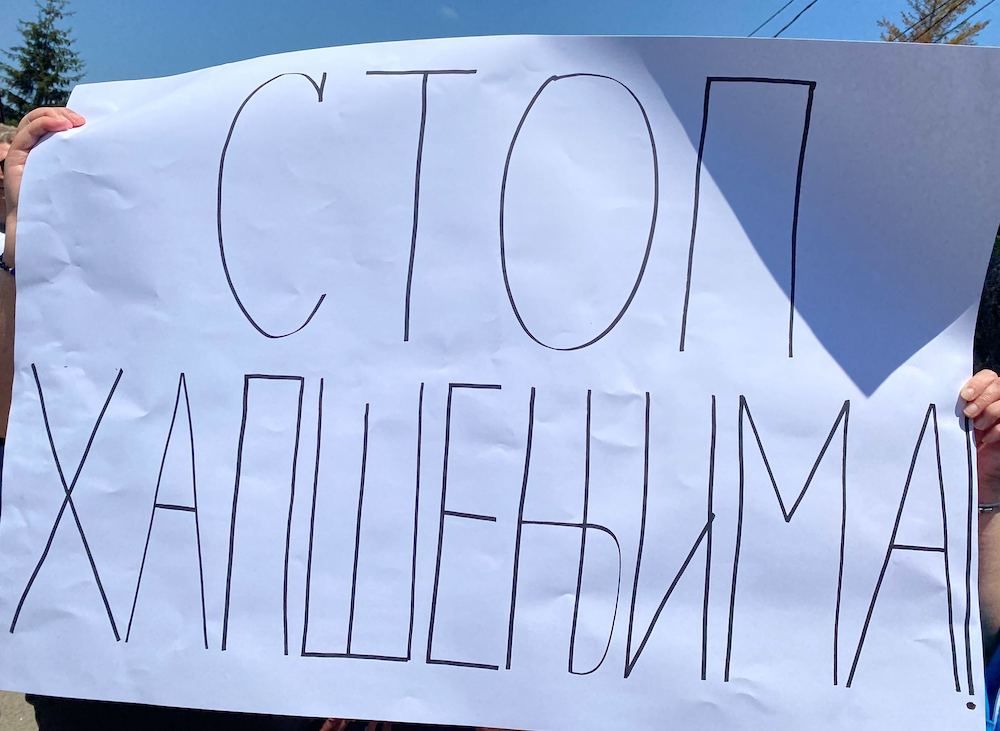 СТОП
ХАПШЕЊИМА!